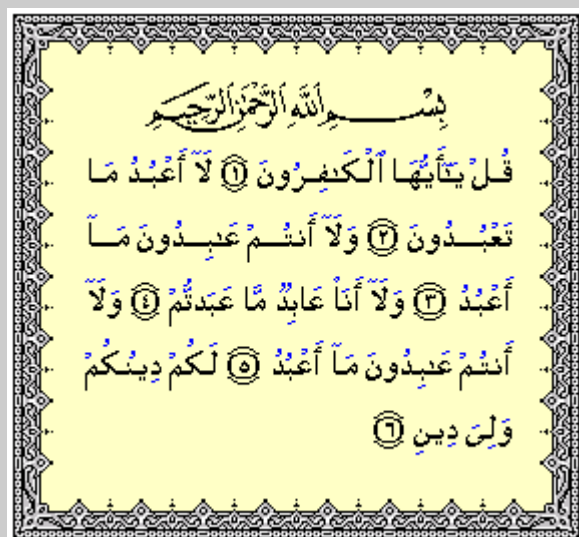 بِسْمِ ٱللَّهِ ٱلرَّحْمَٰنِ ٱلرَّحِيمِ
قُلْ يَـٰٓأَيُّهَا ٱلْكَـٰفِرُونَ ۝١ لَآ أَعْبُدُ مَا
تَعْبُدُونَ ۝٢ وَلَآ أَنتُمْ عَـٰبِدُونَ مَآ
أَعْبُدُ ۝٣ وَلَآ أَنَا۠ عَابِدٌ مَّا عَبَدتُّمْ ۝٤ وَلَآ
أَنتُمْ عَـٰبِدُونَ مَآ أَعْبُدُ ۝٥ لَكُمْ دِينُكُمْ
وَلِىَ دِينِ ۝٦